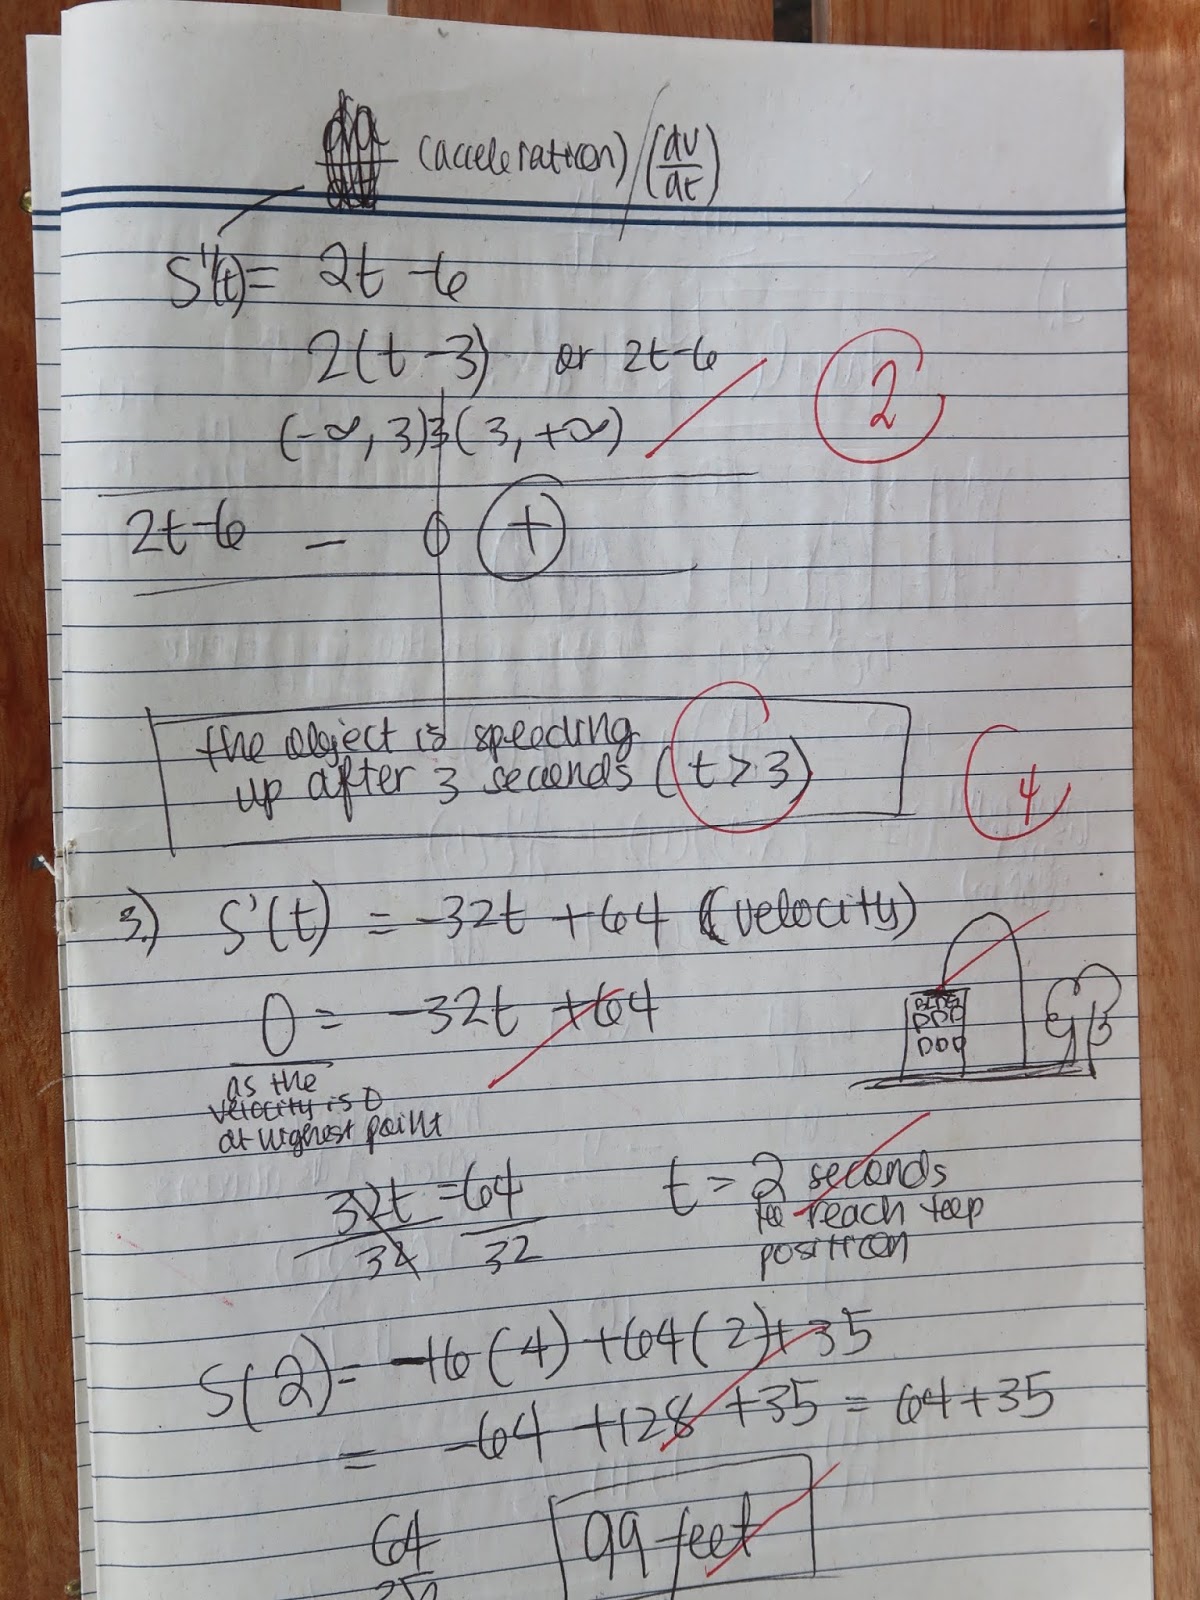 (acceleration) / (dv/dt)
S''(t) = 2t - 6
2(t - 3) or 2t - 6
2
(-∞, 3) 3 (3, +∞)
2t - 6 - 0 +
the object is speeding
up after 3 seconds (t > 3)
4
3.) S'(t) = -32t + 64 (velocity)
0 = -32t + 64
as the
velocity is 0
at highest point
32t = 64
32 32
t = 2 seconds
to reach top
position
S(2) = -16(4) + 64(2) + 35
= -64 + 128 + 35 = 64 + 35
64
99 feet